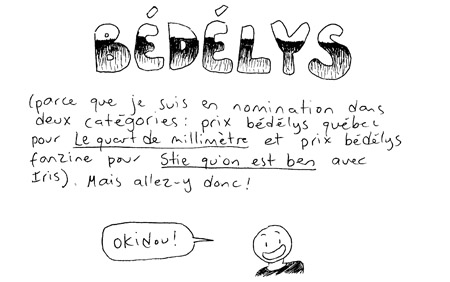 BÉDÉLYS
(parce que je suis en nomination dans
deux catégories: prix bédélys québec
pour Le quart de millimètre et prix bédélys
fanzine pour Stie qu'on est ben avec
Iris). Mais allez-y donc!
okidou!